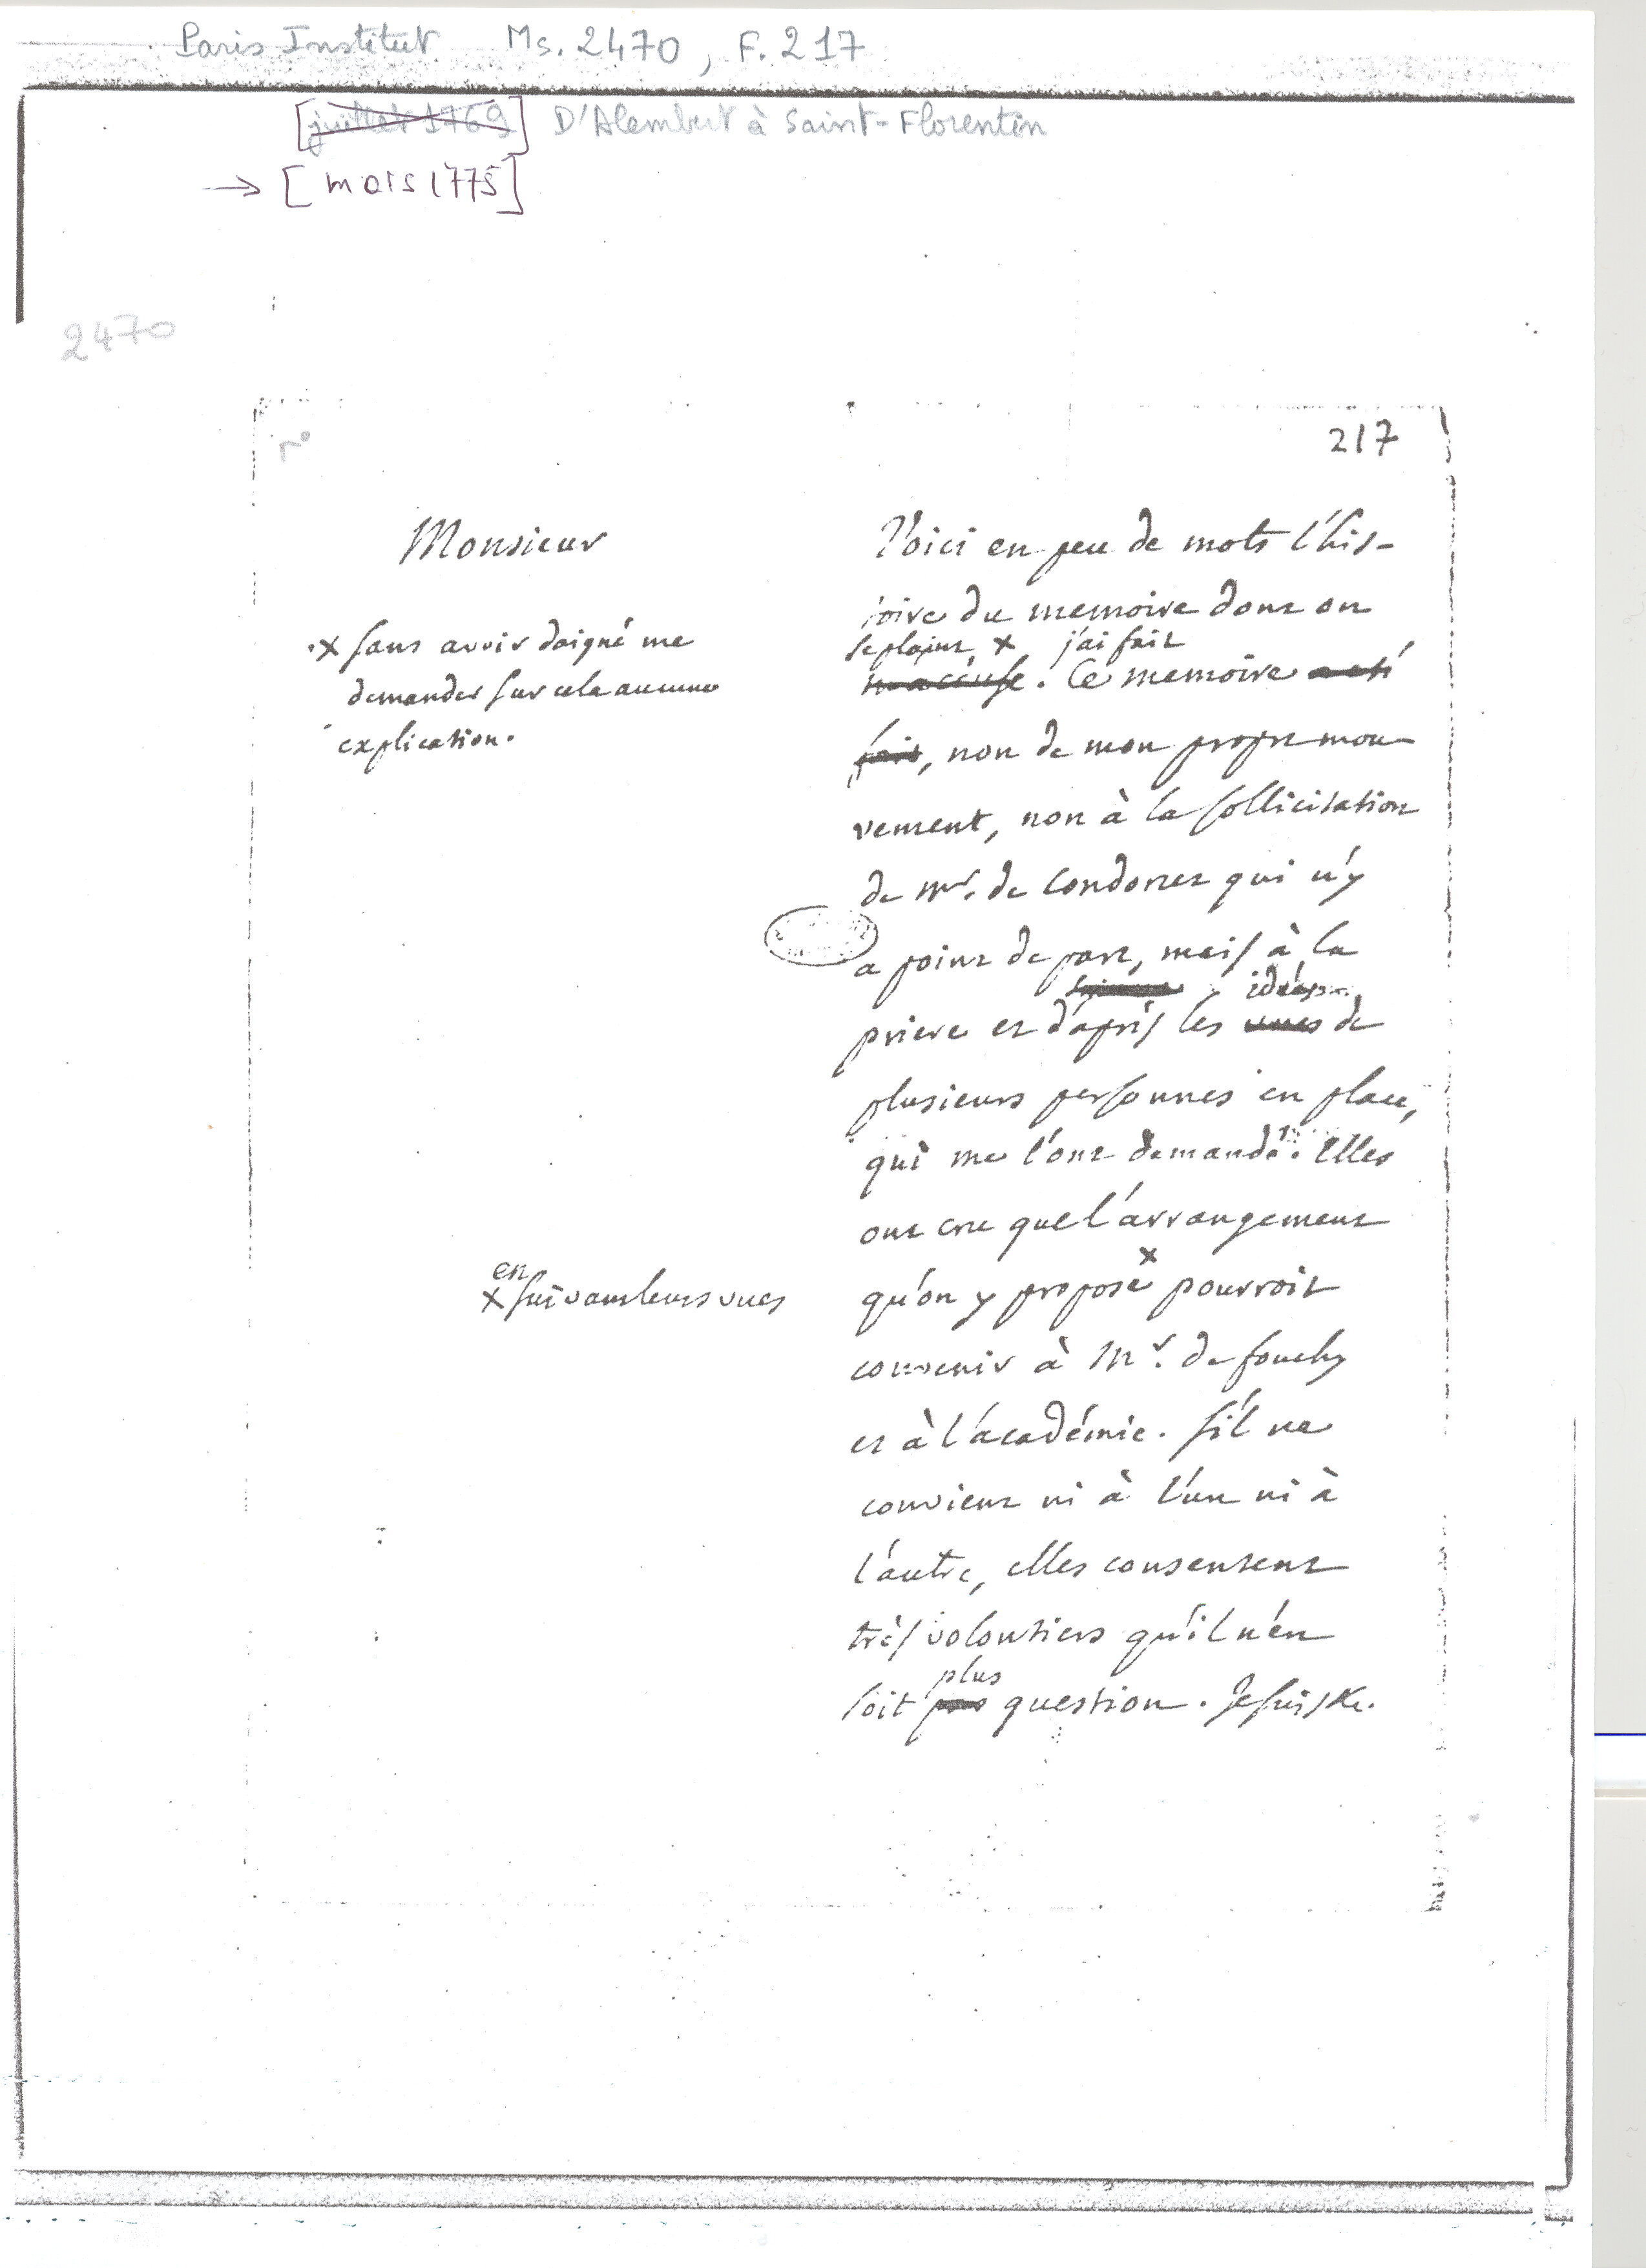 Paris Institut Ms. 2470, F. 217
[juillet 1769] D'Alembert à Saint-Florentin
→ [mars 1775]
2470
r°
217
Monsieur
Voici en peu de mots l'his-
toire du memoire dont on
se plaint × j'ai fait
m'accuse. Ce memoire a eté
fait, non de mon propre mou-
vement, non à la sollicitation
de Mr. de Condorcet qui n'y
a point de part, mais à la
idées
priere et d'après les vues de
plusieurs personnes en place,
qui me l'ont demandé. Elles
ont cru que l'arrangement
×
qu'on y propose pourroit
convenir à Mr. de fouchy
et à l'académie. s'il ne
convient ni à l'un ni à
l'autre, elles consentent
très volontiers qu'il n'en
plus
soit pas question. Je suis &c.
× sans avoir daigné me
demander sur cela aucune
explication.
en
× suivant leurs vues